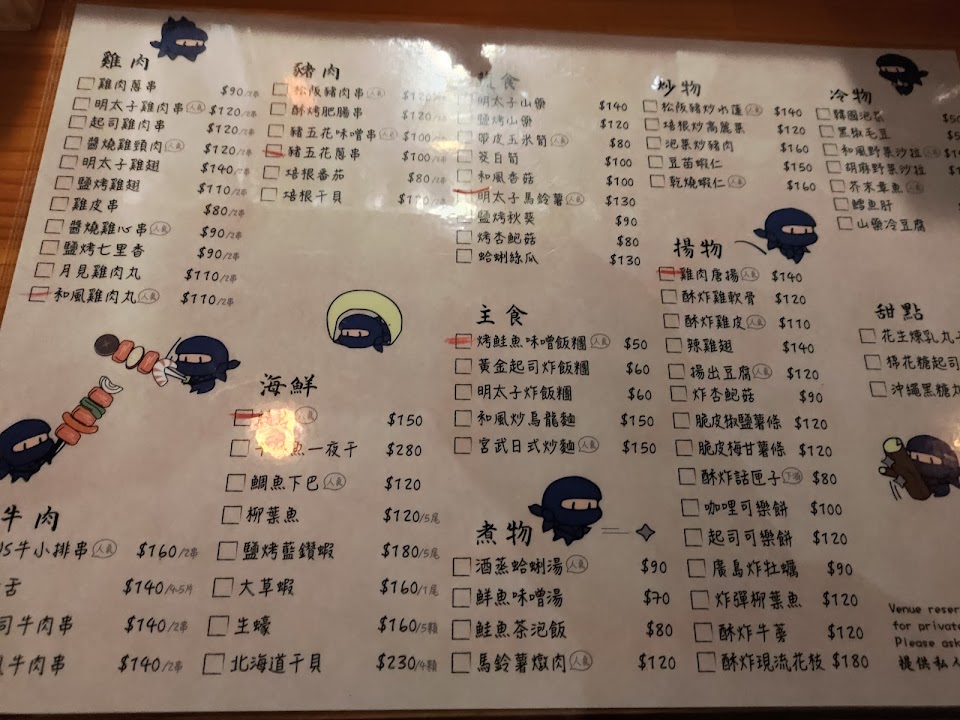 雞肉
雞肉蔥串 $90/2串
明太子雞肉串 人氣 $120/2串
起司雞肉串 $120/2串
醬燒雞頸肉 人氣 $120/2串
明太子雞翅 $140/2串
鹽烤雞翅 $110/2串
雞皮串 $80/2串
醬燒雞心串 人氣 $90/2串
鹽烤七里香 $90/2串
月見雞肉丸 $110/2串
和風雞肉丸 人氣 $110/2串
豬肉
松阪豬肉串 人氣 $120
酥烤肥腸串 $120/2串
豬五花味噌串 人氣 $100/2串
豬五花蔥串 $100/2串
培根番茄 $80/2串
培根干貝
食
明太子山藥 $140
鹽烤山藥 $120
帶皮玉米筍 人氣 $80
茭白筍 $100
和風香菇 $100
明太子馬鈴薯 人氣 $130
鹽烤秋葵 $90
烤杏鮑菇 $80
蛤蜊絲瓜 $130
炒物
松阪豬炒水蓮 人氣 $140
培根炒高麗菜 $120
泡菜炒豬肉 $160
豆苗蝦仁 $150
乾燒蝦仁 人氣 $160
冷物
韓國泡菜 $50
黑椒毛豆
和風野菜沙拉 人氣
胡麻野菜沙拉
芥末章魚 人氣
鱈魚肝
山藥冷豆腐
揚物
雞肉唐揚 人氣 $140
酥炸雞軟骨 $120
酥炸雞皮 人氣 $110
辣雞翅 $140
揚出豆腐 人氣 $120
炸杏鮑菇 $90
脆皮椒鹽薯條 $120
脆皮梅甘薯條 $120
酥炸話匣子 下酒 $80
咖哩可樂餅 $100
起司可樂餅 $120
廣島炸牡蠣 $90
炸彈柳葉魚 $120
酥炸牛蒡 $120
酥炸現流花枝 $180
主食
烤鮭魚味噌飯糰 人氣 $50
黃金起司炸飯糰 $60
明太子炸飯糰 $60
和風炒烏龍麵 $150
宮武日式炒麵 人氣 $150
甜點
花生煉乳丸子
棉花糖起司
沖繩黑糖丸
海鮮
人氣 $150
魚一夜干 $280
鯛魚下巴 人氣 $120
柳葉魚 $120/5尾
鹽烤藍鑽蝦 $180/5尾
大草蝦 $160/1尾
生蠔 $160/5顆
北海道干貝 $230/4顆
牛肉
US牛小排串 人氣 $160/2串
舌 $140/4-5片
司牛肉串 $140/2串
牛肉串 $140/2串
煮物
酒蒸蛤蜊湯 人氣 $90
鮮魚味噌湯 $70
鮭魚茶泡飯 $80
馬鈴薯燉肉 人氣 $120
Venue reser
for private
Please ask
提供私人